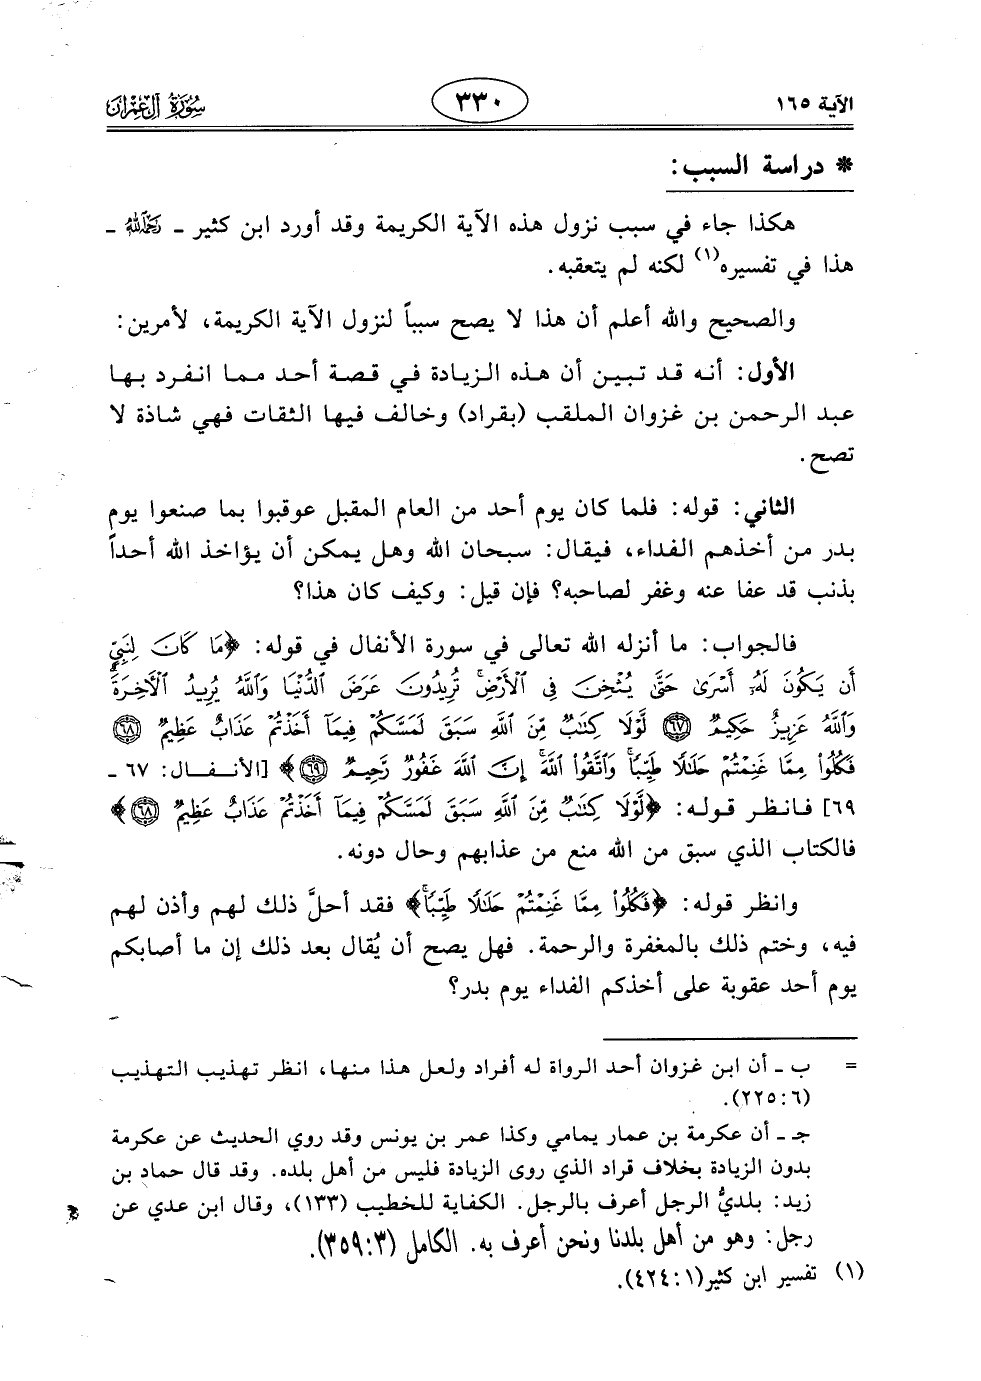 الآية ١٦٥ ٣٣٠ سورة آل عمران
* دراسة السبب:
هكذا جاء في سبب نزول هذه الآية الكريمة وقد أورد ابن كثير ـ رحمه الله ـ
هذا في تفسيره(١) لكنه لم يتعقبه.
والصحيح والله أعلم أن هذا لا يصح سبباً لنزول الآية الكريمة، لأمرين:
الأول: أنه قد تبين أن هذه الزيادة في قصة أحد مما انفرد بها
عبد الرحمن بن غزوان الملقب (بقراد) وخالف فيها الثقات فهي شاذة لا
تصح.
الثاني: قوله: فلما كان يوم أحد من العام المقبل عوقبوا بما صنعوا يوم
بدر من أخذهم الفداء، فيقال: سبحان الله وهل يمكن أن يؤاخذ الله أحداً
بذنب قد عفا عنه وغفر لصاحبه؟ فإن قيل: وكيف كان هذا؟
فالجواب: ما أنزله الله تعالى في سورة الأنفال في قوله: ﴿مَا كَانَ لِنَبِيٍّ
أَن يَكُونَ لَهُۥٓ أَسْرَىٰ حَتَّىٰ يُثْخِنَ فِي ٱلْأَرْضِۚ تُرِيدُونَ عَرَضَ ٱلدُّنْيَا وَٱللَّهُ يُرِيدُ ٱلْآخِرَةَۗ
وَٱللَّهُ عَزِيزٌ حَكِيمٌ ٦٧ لَّوْلَا كِتَٰبٌ مِّنَ ٱللَّهِ سَبَقَ لَمَسَّكُمْ فِيمَآ أَخَذْتُمْ عَذَابٌ عَظِيمٌ ٦٨
فَكُلُوا۟ مِمَّا غَنِمْتُمْ حَلَٰلًا طَيِّبًاۚ وَٱتَّقُوا۟ ٱللَّهَۚ إِنَّ ٱللَّهَ غَفُورٌ رَّحِيمٌ ٦٩﴾ [الأنفال: ٦٧ ـ
٦٩] فانظر قوله: ﴿لَّوْلَا كِتَٰبٌ مِّنَ ٱللَّهِ سَبَقَ لَمَسَّكُمْ فِيمَآ أَخَذْتُمْ عَذَابٌ عَظِيمٌ ٦٨﴾
فالكتاب الذي سبق من الله منع من عذابهم وحال دونه.
وانظر قوله: ﴿فَكُلُوا۟ مِمَّا غَنِمْتُمْ حَلَٰلًا طَيِّبًاۚ﴾ فقد أحلَّ ذلك لهم وأذن لهم
فيه، وختم ذلك بالمغفرة والرحمة. فهل يصح أن يُقال بعد ذلك إن ما أصابكم
يوم أحد عقوبة على أخذكم الفداء يوم بدر؟
= ب ـ أن ابن غزوان أحد الرواة له أفراد ولعل هذا منها، انظر تهذيب التهذيب
(٦:٢٢٥).
جـ ـ أن عكرمة بن عمار يمامي وكذا عمر بن يونس وقد روي الحديث عن عكرمة
بدون الزيادة بخلاف قراد الذي روى الزيادة فليس من أهل بلده. وقد قال حماد بن
زيد: بلديُّ الرجل أعرف بالرجل. الكفاية للخطيب (١٣٣)، وقال ابن عدي عن
رجل: وهو من أهل بلدنا ونحن أعرف به. الكامل (٣:٣٥٩).
(١) تفسير ابن كثير(١:٤٢٤).